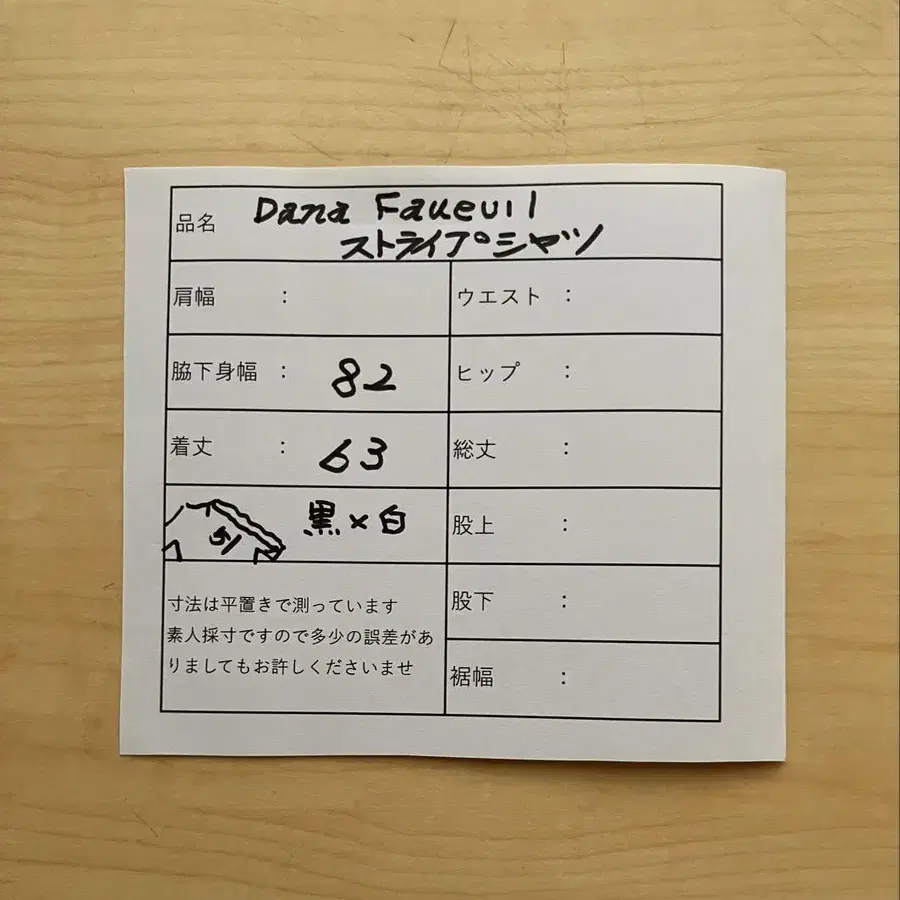 品名 Dana Faueuil
ストライプシャツ
肩幅 :
ウエスト :
脇下身幅 : 82
ヒップ :
着丈 : 63
総丈 :
黒×白
股上 :
寸法は平置きで測っています
素人採寸ですので多少の誤差があ
りましてもお許しくださいませ
股下 :
裾幅 :